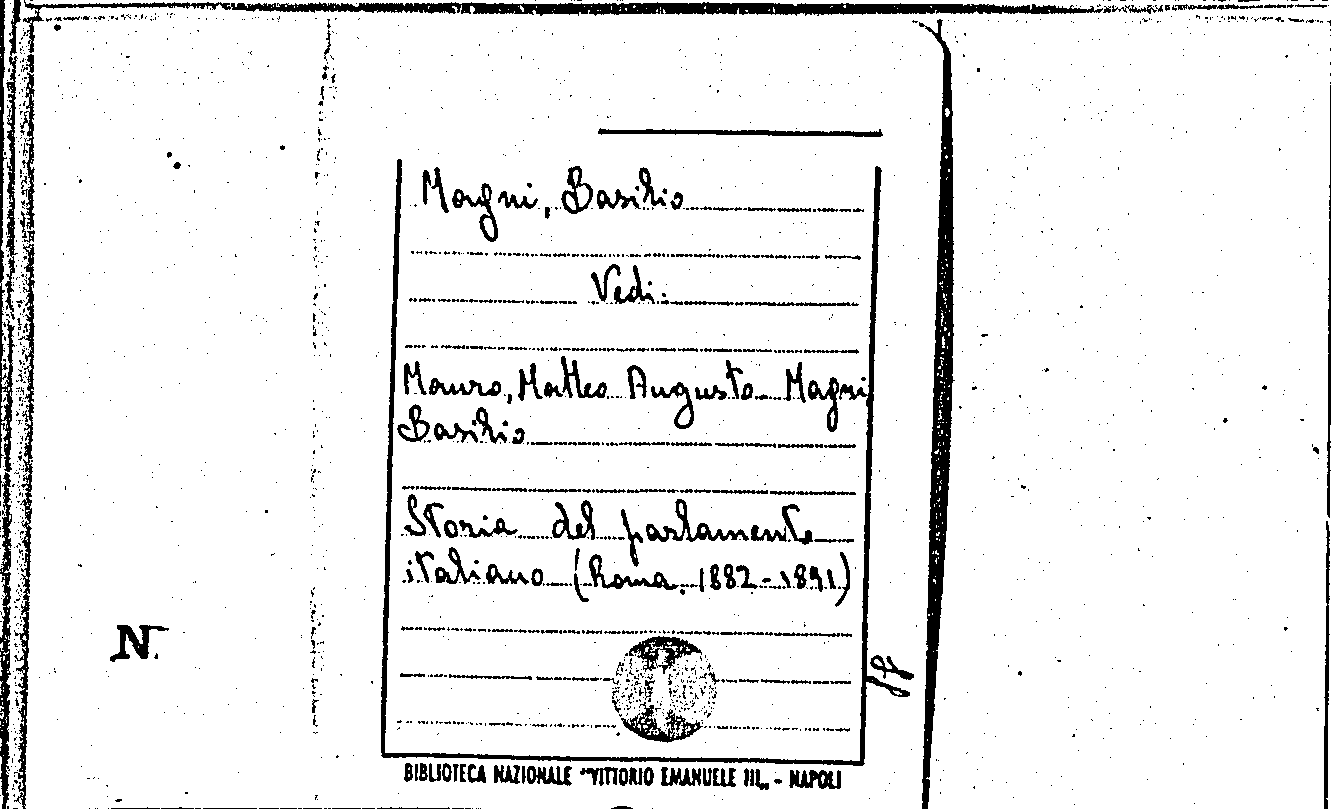 Magni, Basilio
Vedi:
Mauro, Matteo Augusto - Magni
Basilio
Storia del parlamento
italiano (Roma, 1882-1891)
N.
BIBLIOTECA NAZIONALE "VITTORIO EMANUELE III„ - NAPOLI